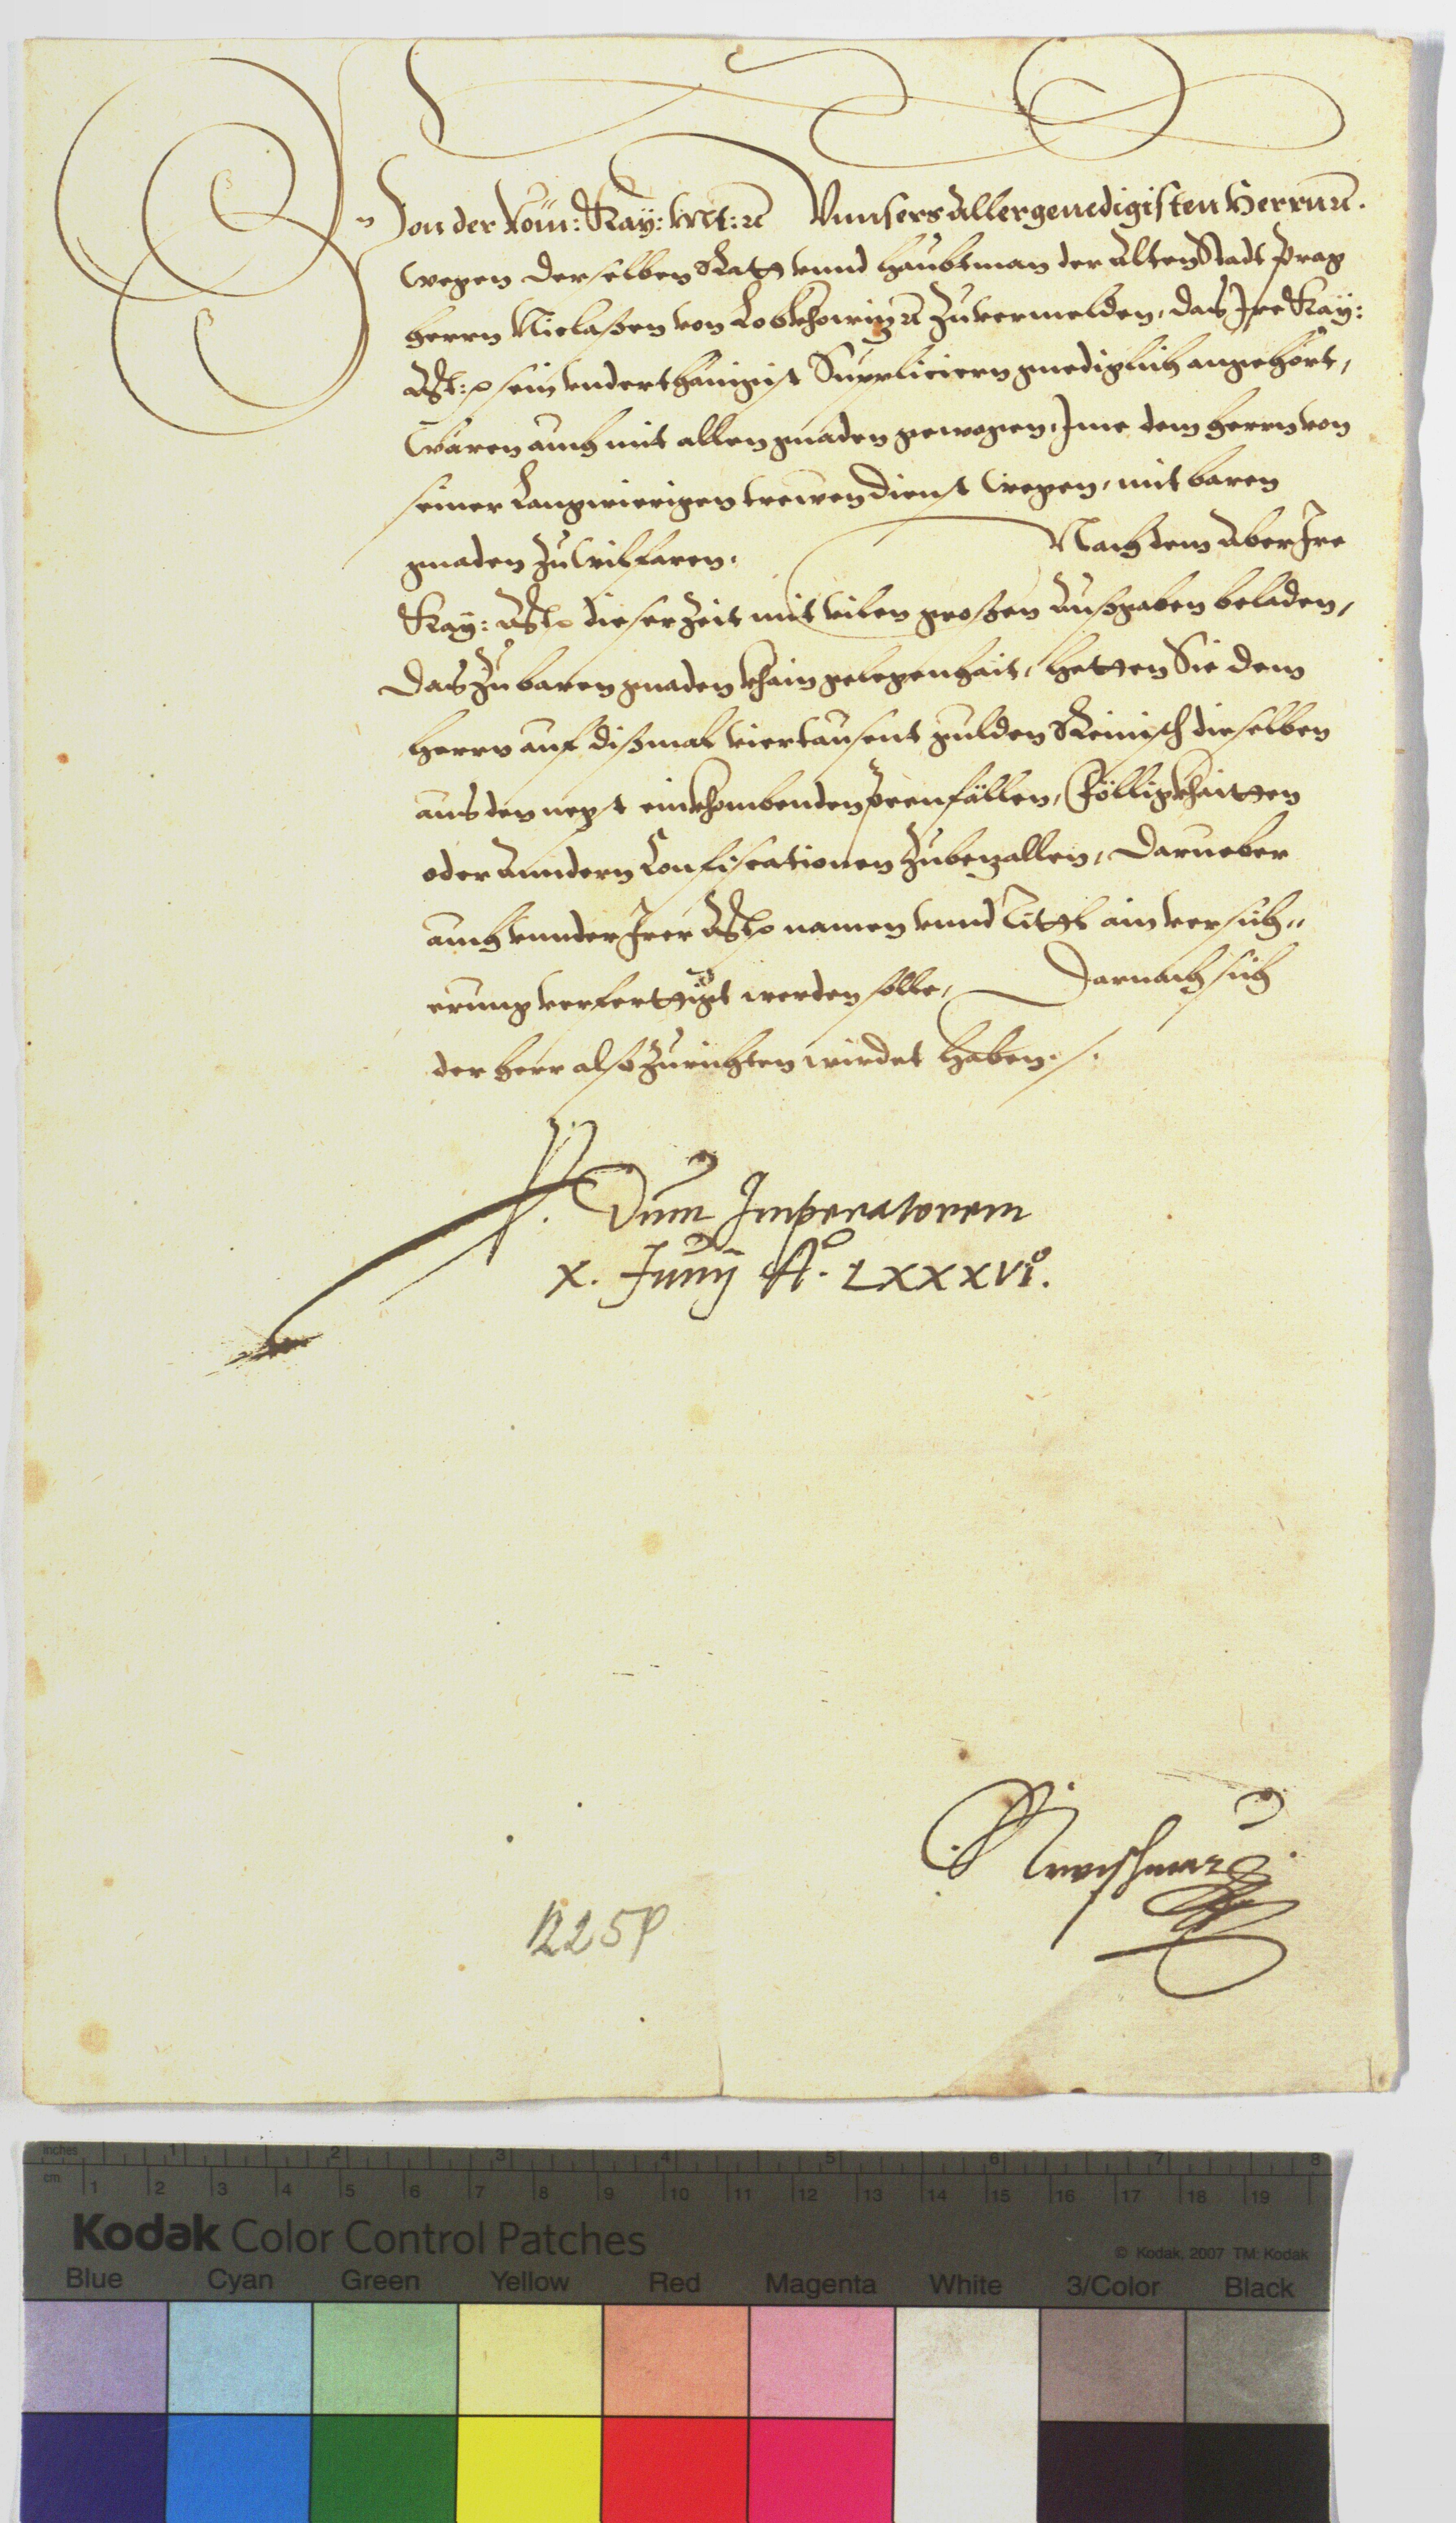 Von der Röm: Kay: Mt: etc. Vnnsers Allergenedigisten Herrn etc.
wegen derselben Rath vnnd haubtman der Alten Stadt Prag
herrn Niclaßen von Lobkhowitz etc. Zuvermelden, das Ire Kay:
Mt: sein vnderthänigist Suppliciern gnediglich angehört,
Wären auch mit allen gnaden gewogen, Ime dem herrn von
seiner Langwierigen trewen Dienst wegen, mit baren
gnaden zu Wilfaren. Nach dem aber Ire
Kay: Mt dieser Zeit mit vilen großen Außgaben beladen,
das Zu baren gnaden khain gelegenhait, hetten Sie dem
herrn auf dißmal viertausent gulden Reinisch dieselben
aus den negst einkhombenden Peenfällen, Fölligkhaitten
oder Anndern Confiscationen Zubezallen, Darueber
auch vnnder Irer Mt namen vnnd Tittl ain versich"
erung verferttigt werden solle, Darnach sich
der herr also Zurichten wirdet haben ./.
P. Dnm Imperatorem
X. Junij A°. LXXXVI°.
1225
inches 1 2 3 4 5 6 7 8
cm 1 2 3 4 5 6 7 8 9 10 11 12 13 14 15 16 17 18 19
Kodak Color Control Patches
© Kodak, 2007 TM: Kodak
Blue Cyan Green Yellow Red Magenta White 3/Color Black